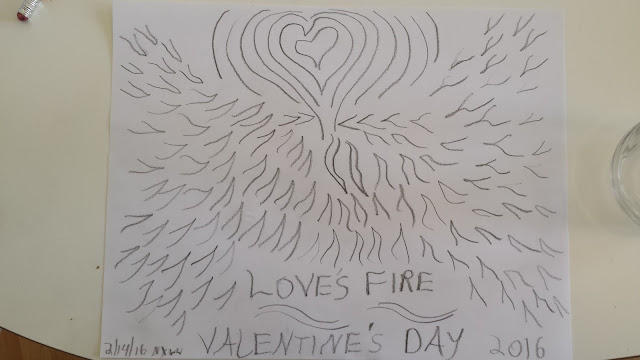 LOVE'S FIRE
2/14/16 VALENTINE'S DAY 2016